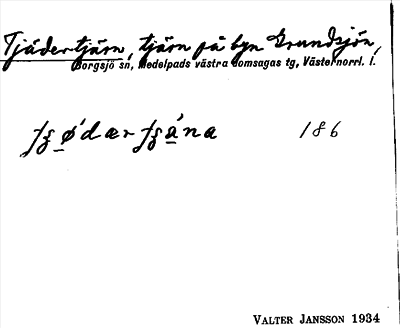 Tjädertjärn, tjärn på byn Grundsjön,
Borgsjö sn, Medelpads västra domsagas tg, Västernorrl. l.
186
VALTER JANSSON 1934